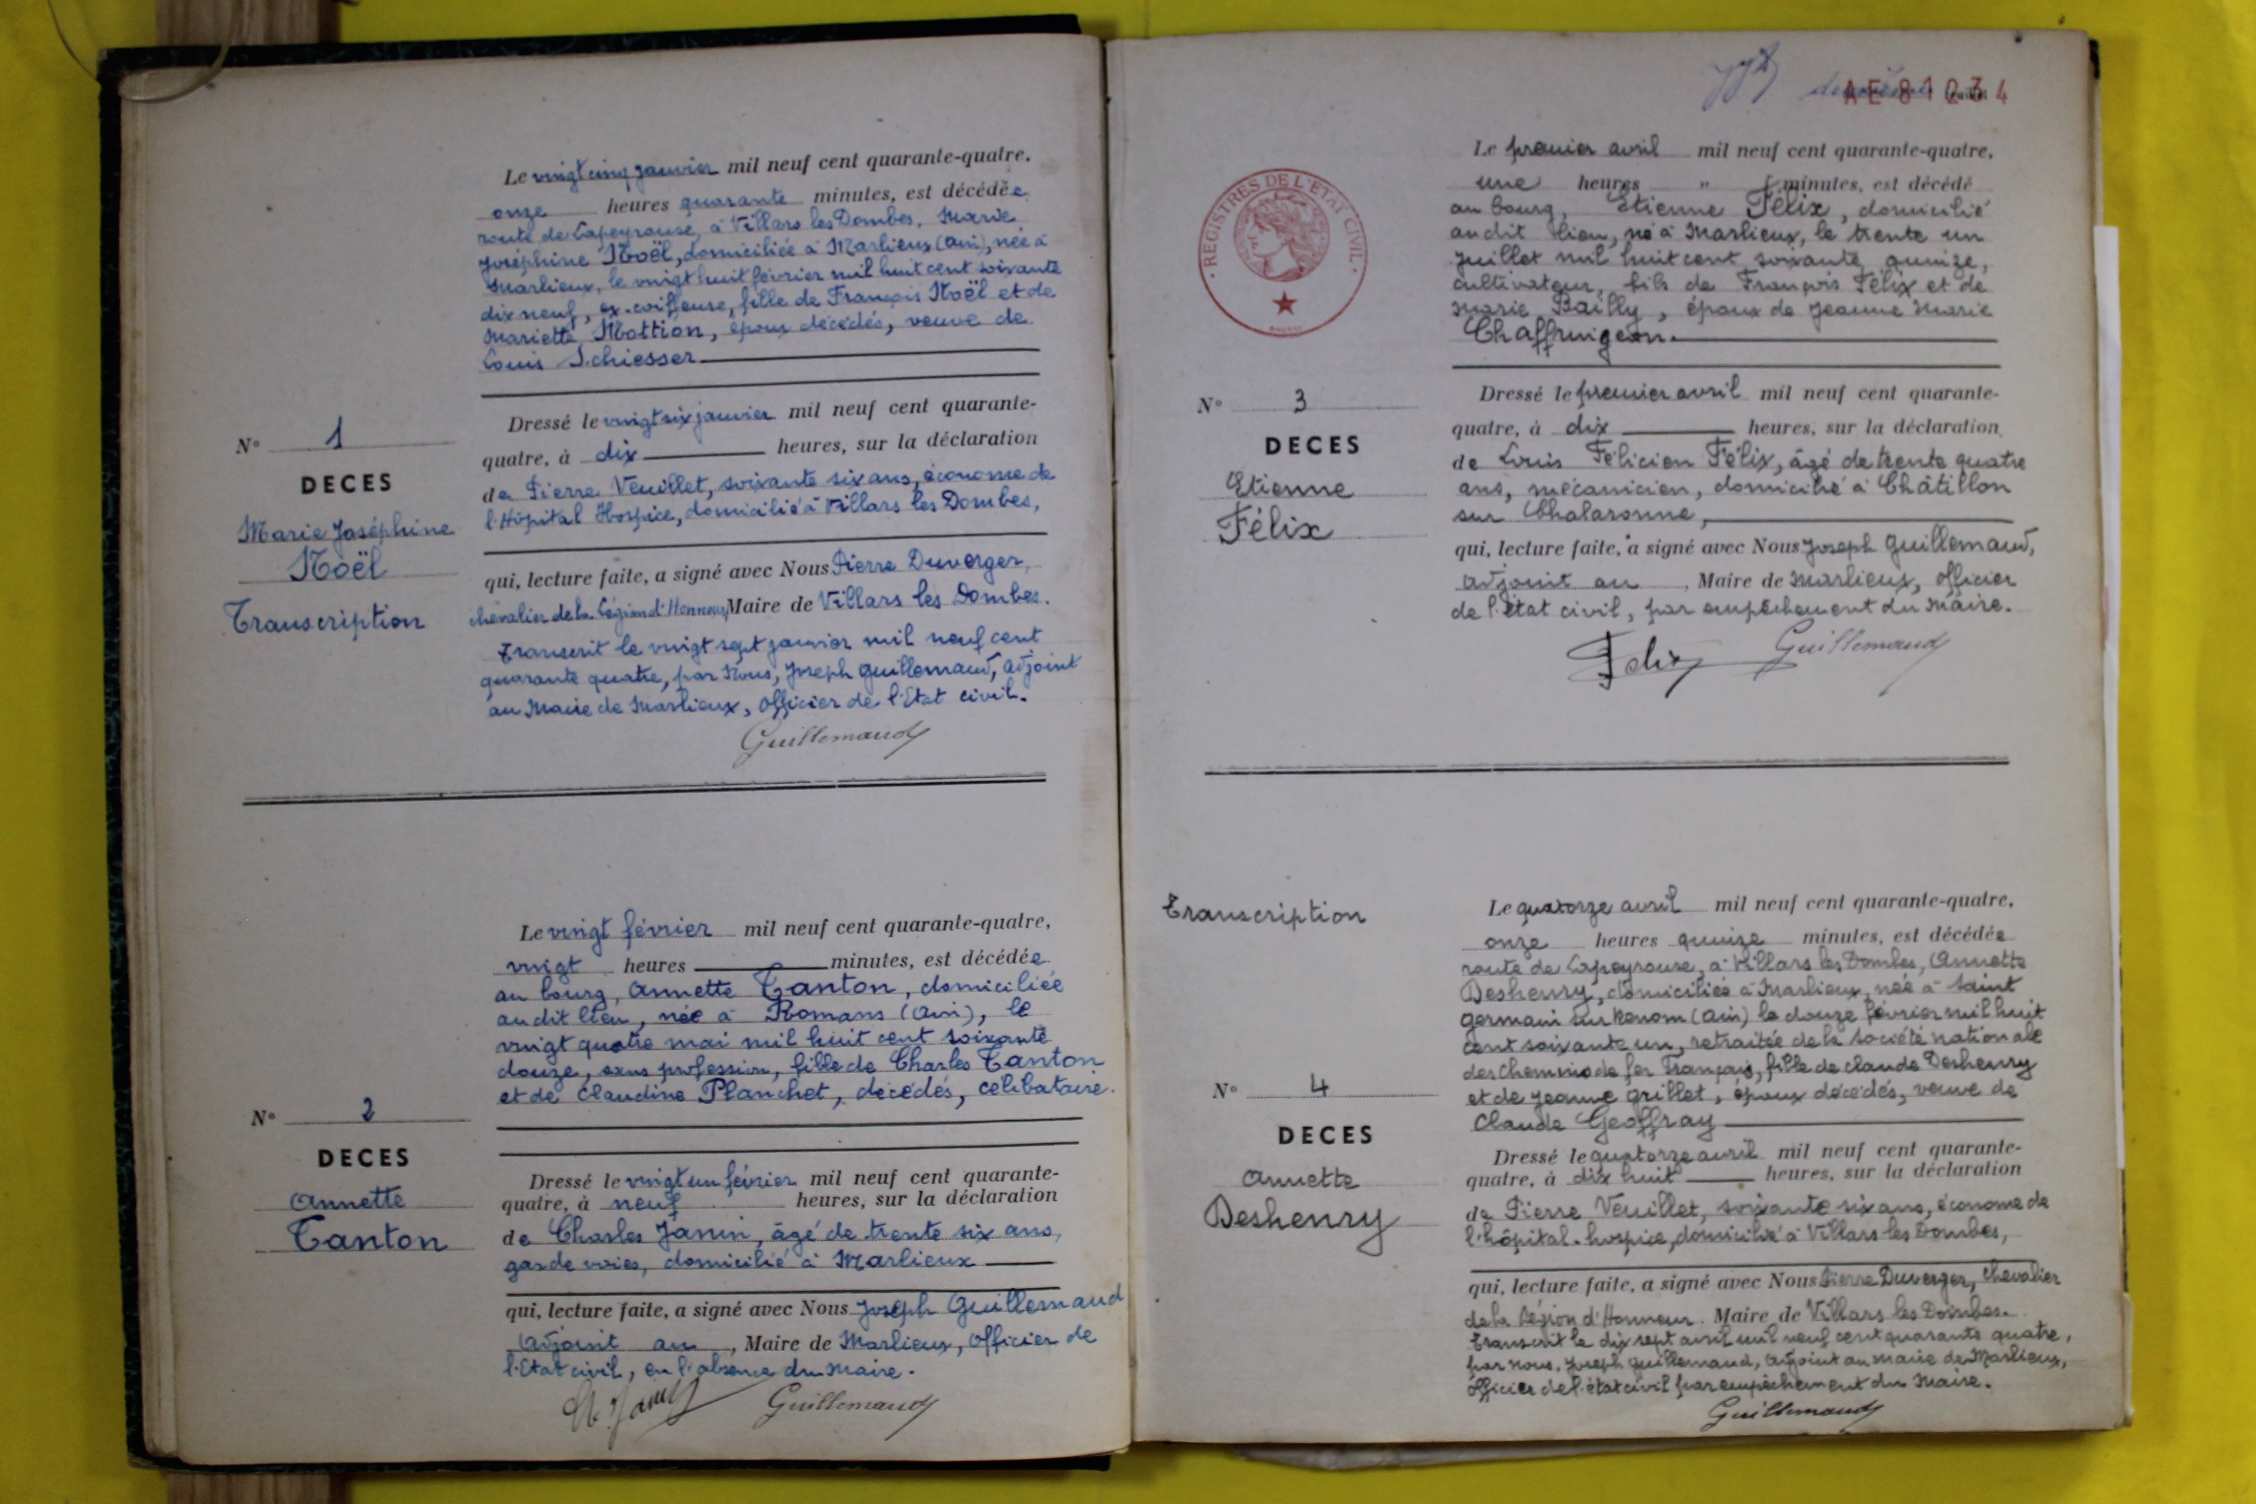 Le vingt cinq janvier mil neuf cent quarante-quatre,
onze heures quarante minutes, est décédée
route de Lapeyrouse, à Villars les Dombes, Marie
Joséphine Noël, domiciliée à Marlieux (Ain), née à
Marlieux, le vingt huit février mil huit cent soixante
dix neuf, ex-coiffeuse, fille de François Noël et de
Mariette Mottion, époux décédés, veuve de
Louis Schiesser
N° 1
DECES
Marie Joséphine
Noël
Transcription
Dressé le vingt six janvier mil neuf cent quarante-
quatre, à dix heures, sur la déclaration
de Pierre Veuillet, soixante six ans, économe de
l'Hôpital Hospice, domicilié à Villars les Dombes,
qui, lecture faite, a signé avec Nous Pierre Duverger,
chevalier de la Légion d'Honneur, Maire de Villars les Dombes.
Transcrit le vingt sept janvier mil neuf cent
quarante quatre, par Nous, Joseph Guillemaud, Adjoint
au Maire de Marlieux, Officier de l'Etat civil.
Guillemaud
Le vingt février mil neuf cent quarante-quatre,
vingt heures minutes, est décédée
au bourg, Annette Tanton, domiciliée
audit lieu, née à Romans (Ain), le
vingt quatre mai mil huit cent soixante
douze, sans profession, fille de Charles Tanton
et de Claudine Planchet, décédés, célibataire.
N° 2
DECES
Annette
Tanton
Dressé le vingt un février mil neuf cent quarante-
quatre, à neuf heures, sur la déclaration
de Charles Janin, âgé de trente six ans,
garde voies, domicilié à Marlieux
qui, lecture faite, a signé avec Nous Joseph Guillemaud
Adjoint au, Maire de Marlieux, Officier de
l'Etat civil, en l'absence du Maire.
Guillemaud
AE81234
REGISTRES DE L'ETAT CIVIL
Le premier avril mil neuf cent quarante-quatre,
une heures " minutes, est décédé
au bourg, Etienne Félix, domicilié
audit lieu, né à Marlieux, le trente un
juillet mil huit cent soixante quinze,
cultivateur, fils de François Félix et de
Marie Bailly, époux de Jeanne Marie
Chaffringeon.
N° 3
DECES
Etienne
Félix
Dressé le premier avril mil neuf cent quarante-
quatre, à dix heures, sur la déclaration
de Louis Félicien Félix, âgé de trente quatre
ans, mécanicien, domicilié à Châtillon
sur Chalaronne,
qui, lecture faite, a signé avec Nous Joseph Guillemaud,
Adjoint au, Maire de Marlieux, Officier
de l'état civil, par empêchement du Maire.
Felix Guillemaud
Transcription
Le quatorze avril mil neuf cent quarante-quatre,
onze heures quinze minutes, est décédée
route de Lapeyrouse, à Villars les Dombes, Annette
Deshenry, domiciliée à Marlieux, née à Saint
Germain sur Renom (Ain) le douze février mil huit
cent soixante un, retraitée de la Société nationale
des chemins de fer Français, fille de Claude Deshenry
et de Jeanne Grillet, époux décédés, veuve de
Claude Geoffray
N° 4
DECES
Annette
Deshenry
Dressé le quatorze avril mil neuf cent quarante-
quatre, à dix huit heures, sur la déclaration
de Pierre Veuillet, soixante six ans, économe de
l'hôpital-hospice, domicilié à Villars les Dombes,
qui, lecture faite, a signé avec Nous Pierre Duverger, chevalier
de la Légion d'Honneur. Maire de Villars les Dombes.
Transcrit le dix sept avril mil neuf cent quarante quatre,
par nous, Joseph Guillemaud, adjoint au maire de Marlieux,
officier de l'état civil par empêchement du Maire.
Guillemaud